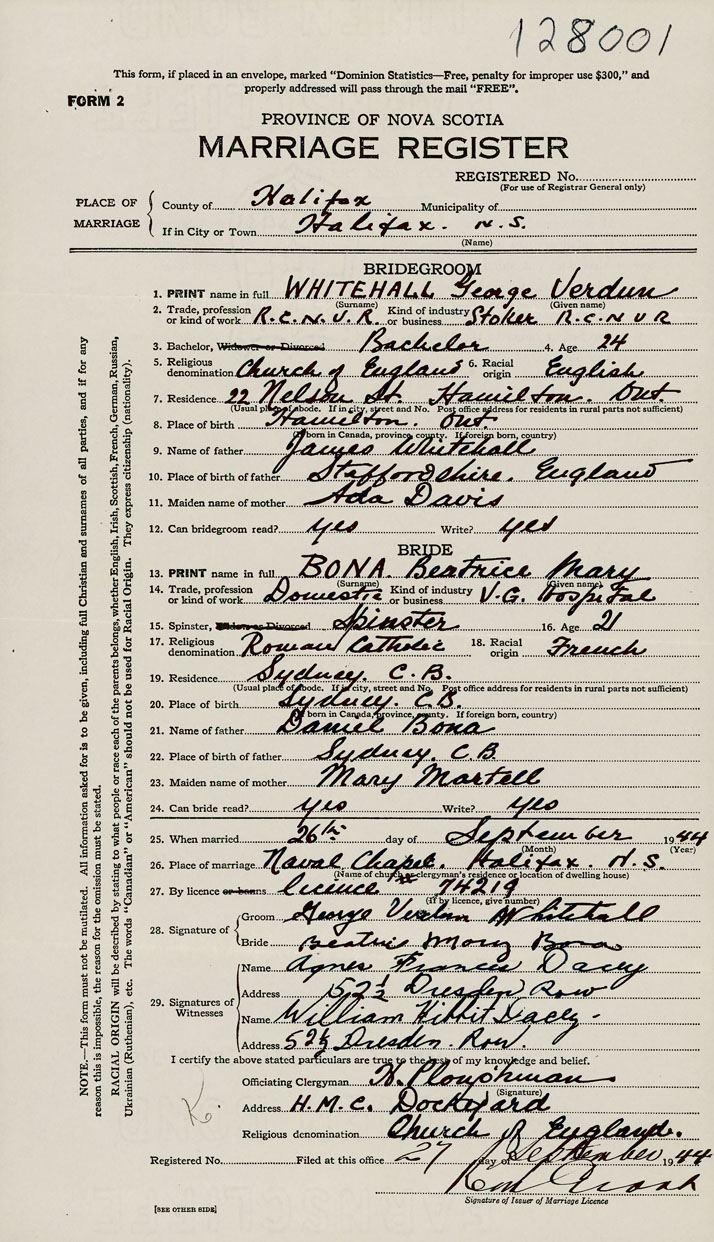 128001
This form, if placed in an envelope, marked "Dominion Statistics—Free, penalty for improper use $300," and
properly addressed will pass through the mail "FREE".
FORM 2
PROVINCE OF NOVA SCOTIA
MARRIAGE REGISTER
REGISTERED No.
(For use of Registrar General only)
PLACE OF MARRIAGE
County of Halifax Municipality of
If in City or Town Halifax. N.S.
(Name)
BRIDEGROOM
1. PRINT name in full WHITEHALL George Verdun
(Surname) (Given name)
2. Trade, profession or kind of work R.C.N.V.R. Kind of industry or business Stoker R.C.N.V.R
3. Bachelor, Widower or Divorced Bachelor 4. Age 24
5. Religious denomination Church of England 6. Racial origin English
7. Residence 22 Nelson St. Hamilton. Ont.
(Usual place of abode. If in city, street and No. Post office address for residents in rural parts not sufficient)
8. Place of birth Hamilton. Ont.
(If born in Canada, province, county. If foreign born, country)
9. Name of father James Whitehall
10. Place of birth of father Staffordshire. England
11. Maiden name of mother Ada Davis
12. Can bridegroom read? yes Write? yes
BRIDE
13. PRINT name in full BONA. Beatrice Mary
(Surname) (Given name)
14. Trade, profession or kind of work Domestic Kind of industry or business V.G. Hospital
15. Spinster, Widow or Divorced Spinster 16. Age 21
17. Religious denomination Roman Catholic 18. Racial origin French
19. Residence Sydney. C.B.
(Usual place of abode. If in city, street and No. Post office address for residents in rural parts not sufficient)
20. Place of birth Sydney. C.B.
(If born in Canada, province, county. If foreign born, country)
21. Name of father Daniel Bona
22. Place of birth of father Sydney. C.B
23. Maiden name of mother Mary Martell
24. Can bride read? yes Write? yes
25. When married 26th day of September 1944
(Month) (Year)
26. Place of marriage Naval Chapel. Halifax. N.S.
(Name of church or clergyman's residence or location of dwelling house)
27. By licence or banns licence 74219
(If by licence, give number)
28. Signature of
Groom George Verdun Whitehall
Bride Beatrice Mary Bona
29. Signatures of Witnesses
Name Agnes Francis Dacey
Address 52½ Dresden Row
Name William Dacey
Address 52½ Dresden Row.
I certify the above stated particulars are true to the best of my knowledge and belief.
Officiating Clergyman H. Ploughman
(Signature)
Address H.M.C. Dockyard
Religious denomination Church of England.
Registered No. Filed at this office 27 day of September 1944
Signature of Issuer of Marriage Licence
[SEE OTHER SIDE]
NOTE.—This form must not be mutilated. All information asked for is to be given, including full Christian and surnames of all parties, and if for any
reason this is impossible, the reason for the omission must be stated.
RACIAL ORIGIN will be described by stating to what people or race each of the parents belongs, whether English, Irish, Scottish, French, German, Russian,
Ukrainian (Ruthenian), etc. The words "Canadian" or "American" should not be used for Racial Origin. They express citizenship (nationality).